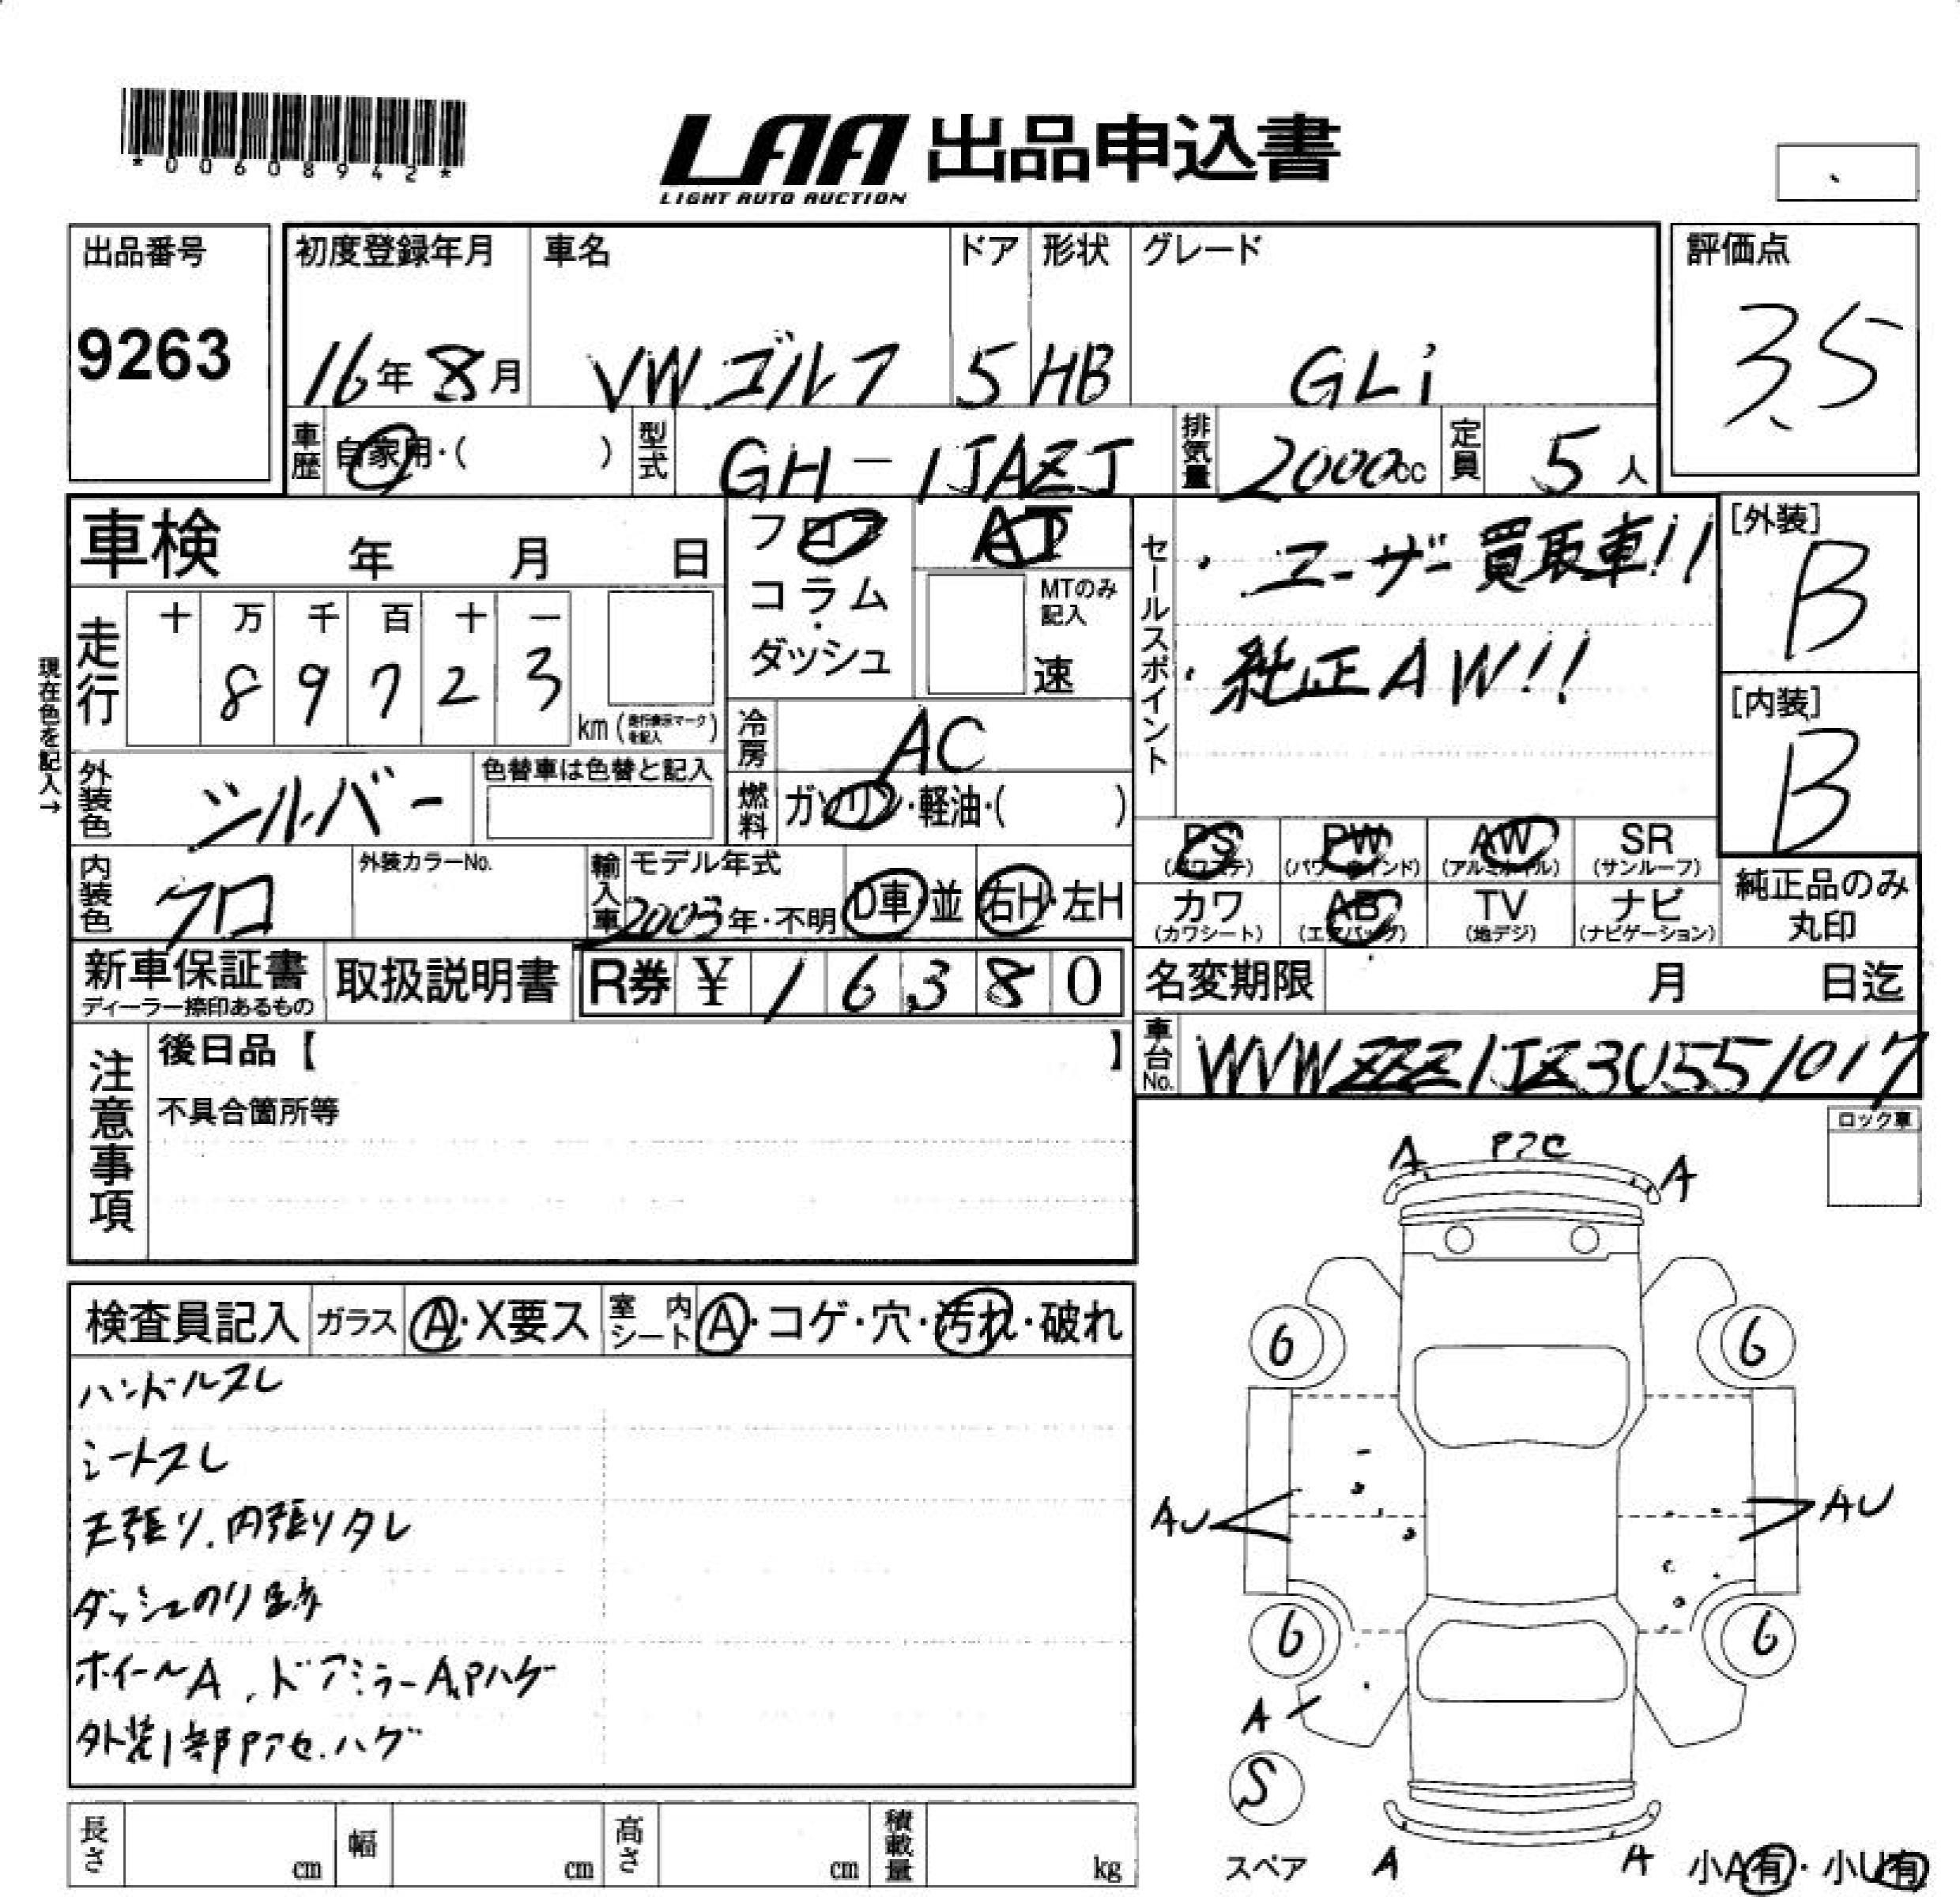 *00608942*
LAA 出品申込書
LIGHT AUTO AUCTION
出品番号
9263
初度登録年月 車名 ドア 形状 グレード
16年 8月 VW ゴルフ 5 HB GLi
評価点
3.5
車歴 自家用・( ) 型式 GH-1JAZJ 排気量 2000cc 定員 5人
車検 年 月 日
フロア AT
コラム・ダッシュ
MTのみ記入 速
セールスポイント
・ユーザー買取車!!
・純正AW!!
[外装]
B
[内装]
B
現在色を記入→
走行 十 万 千 百 十 一
8 9 7 2 3
km (走行表示マークを記入)
冷房 AC
外装色 シルバー 色替車は色替と記入
燃料 ガソリン・軽油・( )
PS (パワステ) PW (パワーウインド) AW (アルミホイル) SR (サンルーフ)
カワ (カワシート) AB (エアバッグ) TV (地デジ) ナビ (ナビゲーション)
純正品のみ丸印
内装色 クロ 外装カラーNo. 輸入車 モデル年式 2003年・不明 D車・並 右H・左H
新車保証書 ディーラー捺印あるもの 取扱説明書 R券 ¥ 1 6 3 8 0
名変期限 月 日迄
車台No. WVWZZZ1JZ3U551017
注意事項
後日品【 】
不具合箇所等
ロック車
検査員記入 ガラス A・X要ス 室内シート A・コゲ・穴・汚れ・破れ
ハンドルスレ
シートスレ
天張り、内張りタレ
ダッシュのり跡
ホイールA、ドアミラーA,Pハゲ
外装1部Pアセ、ハゲ
A Pアセ A
6 6
AU AU
6 6
A
S
スペア A A 小A有・小U有
長さ cm 幅 cm 高さ cm 積載量 kg